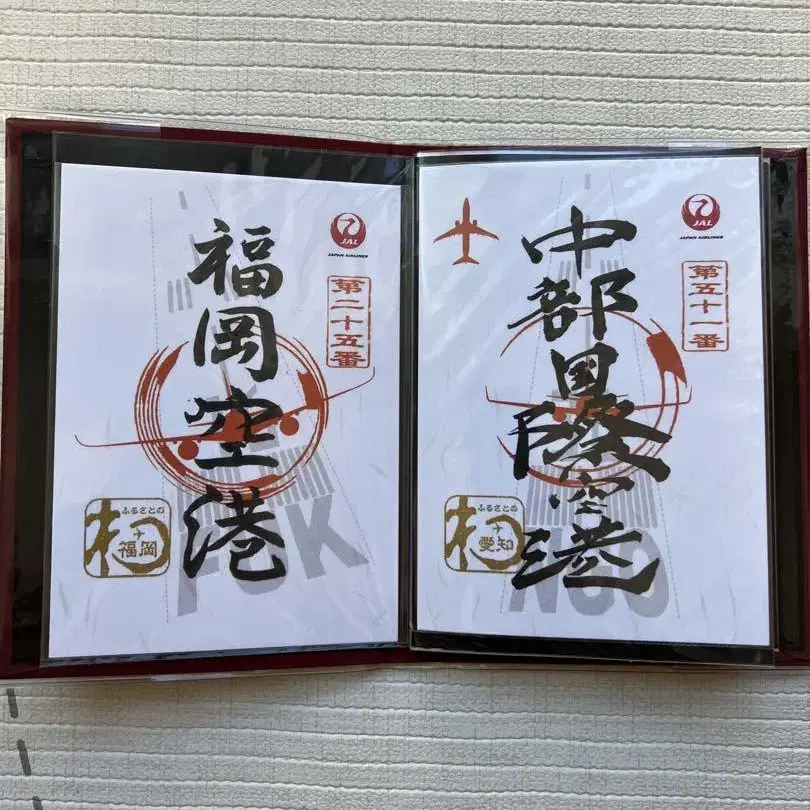 福岡空港
JAL
JAPAN AIRLINES
第二十五番
ふるさとの
福岡
FUK
中部国際空港
JAL
JAPAN AIRLINES
第五十一番
ふるさとの
愛知
NGO